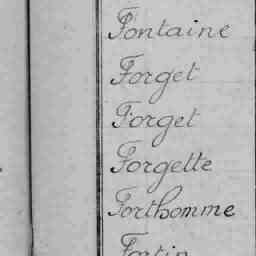 Fontaine
Forget
Forget
Forgette
Forthomme
Fortin